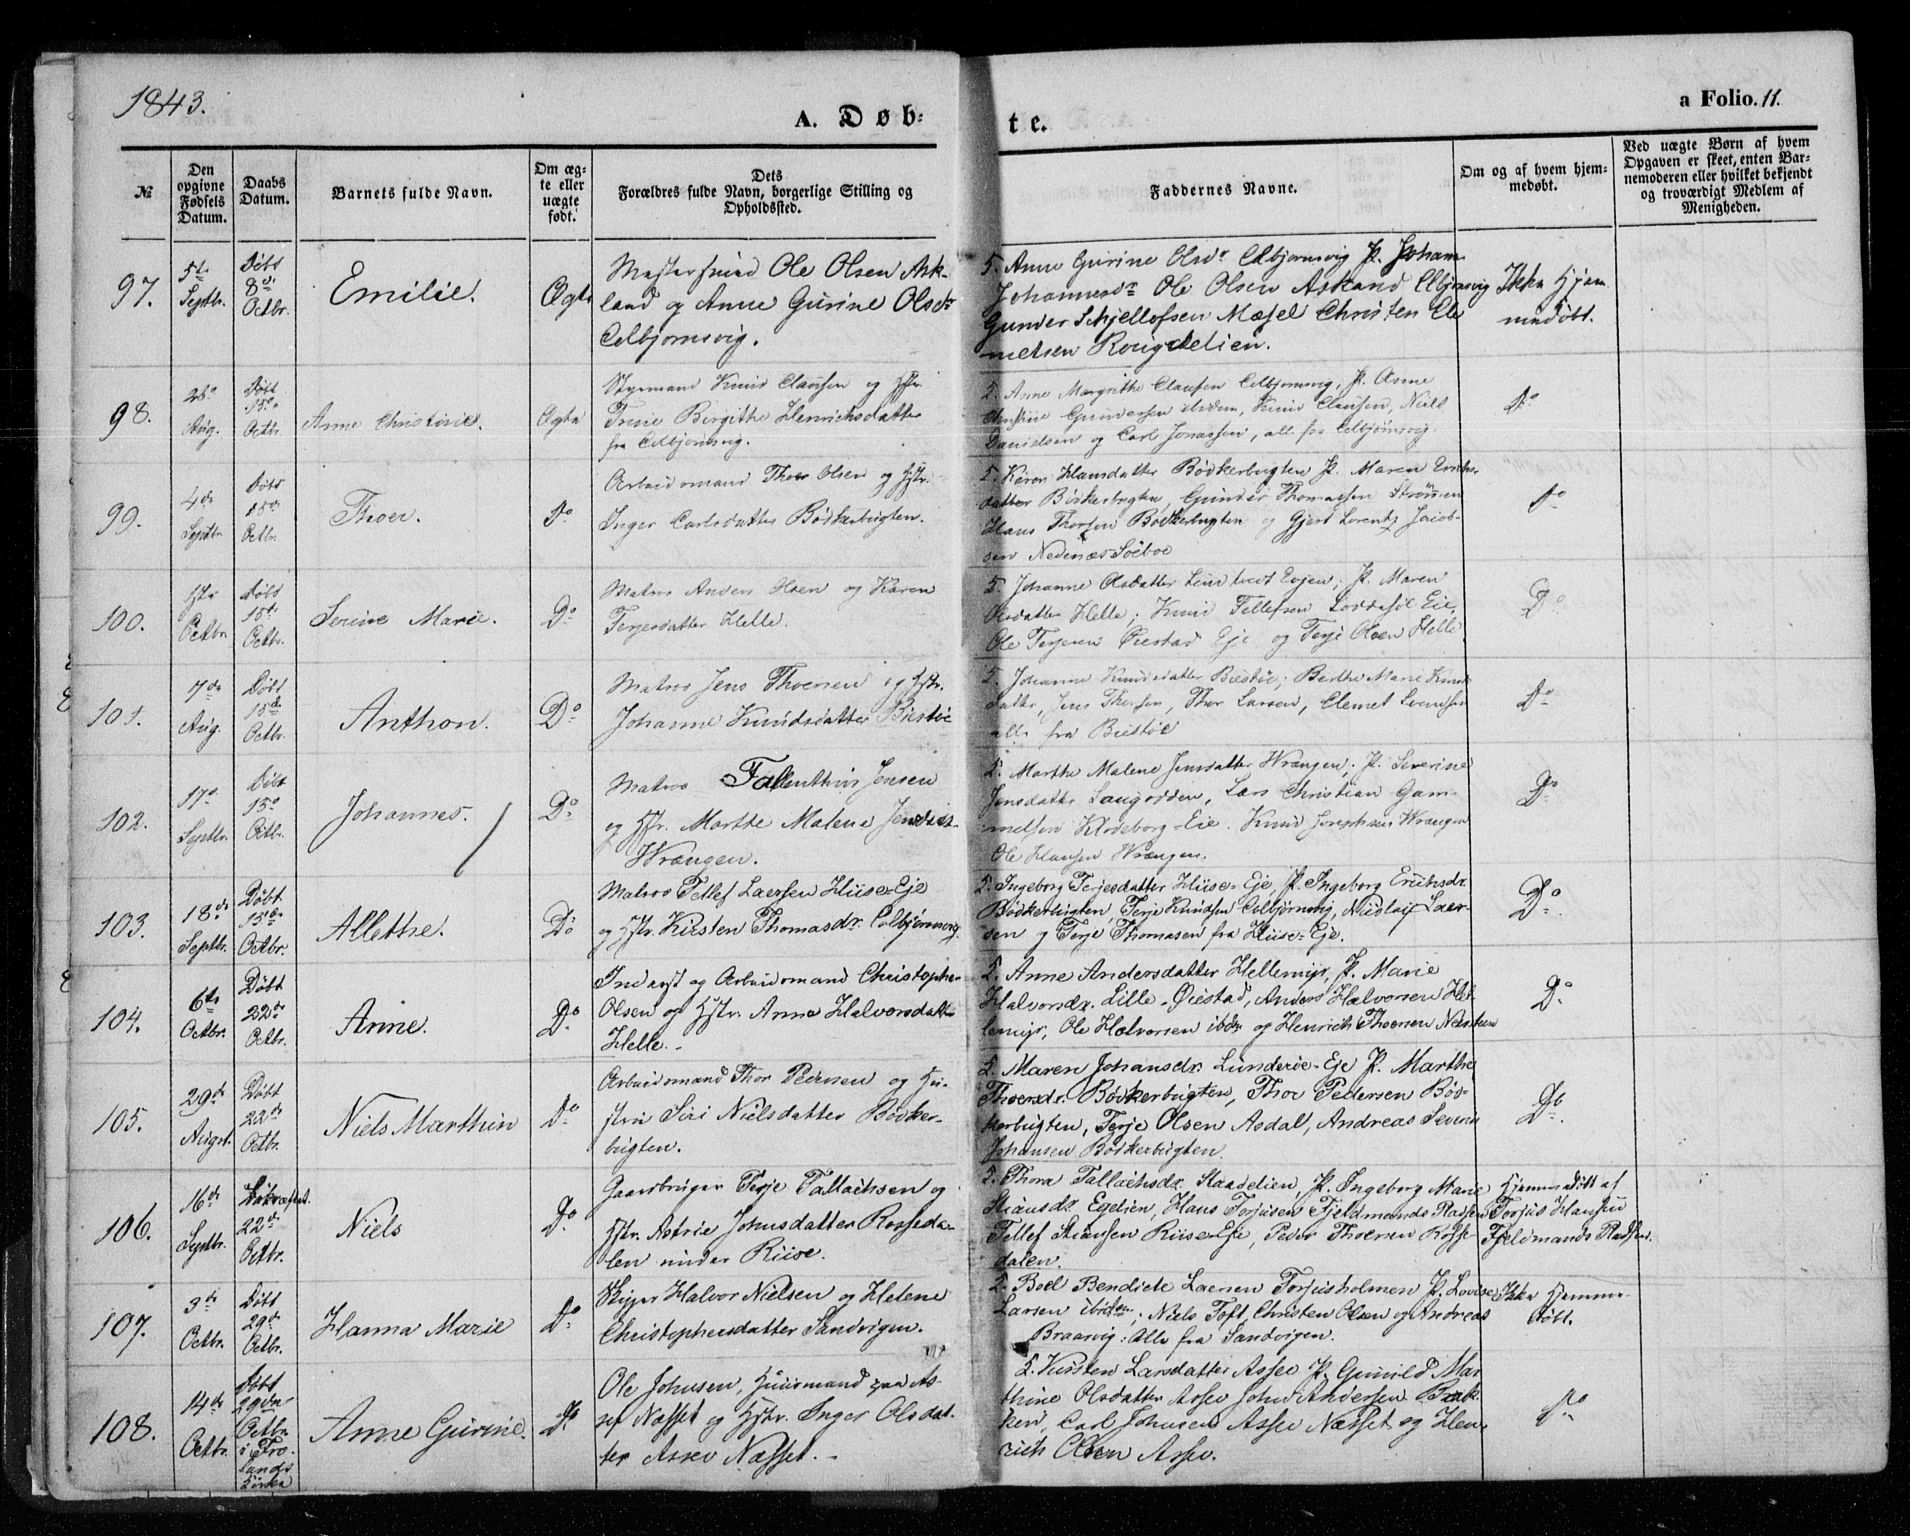 1843.
A. Døb-
te.
a Folio. 11.
№
Den opgivne Fødsels Datum.
Daabs Datum.
Barnets fulde Navn.
Om ægte eller uægte født.
Dets Forældres fulde Navn, borgerlige Stilling og Opholdssted.
Faddernes Navne.
Om og af hvem hjemmedøbt.
Ved uægte Børn af hvem Opgaven er skeet, enten Barnemoderen eller hvilket bekjendt og troværdigt Medlem af Menigheden.
97.
5te Septbr.
Døbt 8de Octbr.
Emilie.
Ægte
Ole Olsen Ask-
land og Anne Gurine Olsdr
Colbjørnsvig.
5. Anne Gurine Olsdr Colbjørnsvig P. Johan
Johannesdr Ole Olsen Askland Colbjørnsvig
Gunder Schjellefsen Mæsel Christen Cle
metsen Rougdelien.
Ikke Hjem
medøbt.
98.
Aug.
Døbt 15de Octbr.
Anne Christine.
Ægte
Styrmand Knud Claussen og Hstr.
Trine Birgithe Henrichsdatter
fra Colbjørnsvig.
5. Anne Margrithe Clausen Colbjørnsvig, P. Anne
Christine Gundersen ibidem, Knud Clausen, Niels
Danielsen og Carl Jonassen, alle fra Colbjørnsvig.
Do
99.
4de Septbr.
Døbt 15de Octbr.
Thoer.
Do
Arbeidsmand Thoer Olsen og Hstr.
Inger Carlsdatter Bødkerbugten.
5. Karen Hansdatter Bødkerbugten P. Maren Erichs-
datter Bødkerbugten, Gunder Thomassen Strømmen
Hans Thorsen Bødkerbugten og Gjert Lorentz Jacob-
sen Nedenæs Søeboe
Do
100.
Octbr.
Døbt 15de Octbr.
Serine Marie.
Do
Matros Anders Olsen og Karen
Terjesdatter Helle.
5. Johanne Olsdatter Evjen; P. Maren
Olsdatter Helle; Knud Tellefsen Eie,
Ole Terjesen Øiestad Eje og Terje Olsen Helle
Do
101.
7de Aug.
Døbt 15de Octbr.
Anthon.
Do
Matros Jens Thoersen og Hstr.
Johanne Knudsdatter Biestøe
5. Johanne Knudsdatter Biestøe; Berthe Marie Knuds
datter, Jens Thorsen, Thor Larsen, Clemet Svendsen
alle fra Biestøe
Do
102.
17de Septbr.
Døbt 15de Octbr.
Johannes.
Do
Matros Fallenthin Jensen
og Hstr. Marthe Malene Jensdtr.
Wrængen.
5. Marthe Malene Jensdatter Wrængen; P. Severine
Jensdatter Langodden, Lars Christian Gam-
melsen Klodeborg-Eie. Knud Josephsen Wrængen
Ole Hansen Wrængen.
Do
103.
18de Septbr.
Døbt 15de Octbr.
Allethe.
Do
Matros Tellef Laersen Hiise-Eje
og Hstr. Kirsten Thomasdr. Colbjørnsvig.
5. Ingeborg Terjesdatter Hiise-Eje, P. Ingeborg Erichsdr.
Bødkerbugten, Terje Knudsen Colbjørnsvig, Nicolai Laer-
sen og Terje Thomasen fra Hiise-Eje.
Do
104.
6te Octbr.
Døbt 22de Octbr.
Anne.
Do
Inderst og Arbeidsmand Christopher
Olsen og Hstr. Anne Halvorsdatter
Helle.
5. Anne Andersdatter Hellemyr, P. Marie
Halvorsdr. Lille-Øiestad, Anders Halvorsen Hel-
lemyr, Ole Halvorsen ibdm og Henrich Thorsen
Do
105.
29de August.
Døbt 22de Octbr.
Niels Marthin
Do
Arbeidsmand Thor Peersen og Hu-
stru Siri Nielsdatter Bødker-
bugten.
5. Maren Johansdr. Lunderøe-Eje P. Marthe
Thoersdr. Bødkerbugten, Thor Pedersen Bød-
kerbugten, Terje Olsen Asdal, Andreas Severin
Johansen Bødkerbugten.
Do
106.
16de Septbr.
22de Octbr.
Niels
Do
Gaardbruger Terje Tallachsen og
Hstr. Astrie Johnsdatter Rosseda-
len under Riise.
5. Thora Tallachsdr. Staadelien, P. Ingeborg Marie
Stiansdr. Egelien, Hans Torjusen Fjeldmands Pladsen
Tellef Stiansen Riise-Eje, Peder Thoersen Rosse-
dalen.
Hjemmedøbt af
Torjus Hansen
Fjeldmands Pladsen.
107.
3de Octbr.
Døbt 29de Octbr.
Hanna Marie
Do
Skipper Halvor Nielsen og Helene
Christophersdatter Sandvigen.
5. Boel Bendicte Laersen Torjusholmen P. Lovise
Larsen ibidem; Niels Toft, Christen Olsen og Andreas
Braarvig: Alle fra Sandvigen.
Ikke Hjemme-
døbt.
108.
14de Octbr.
Døbt 29de Octbr. i Tro- møe Kirke
Anne Gurine.
Do
Ole Johnsen, Huusmand paa As-
sev Næsset og Hstr. Inger Olsdat-
ter Assev Næsset.
5. Kirsten Larsdatter Assev P. Gunild Mar
thine Olsdatter Assev John Andersen Bræk-
ken, Carl Johnsen Assev Næsset og Hen-
rich Olsen Assev.
Do